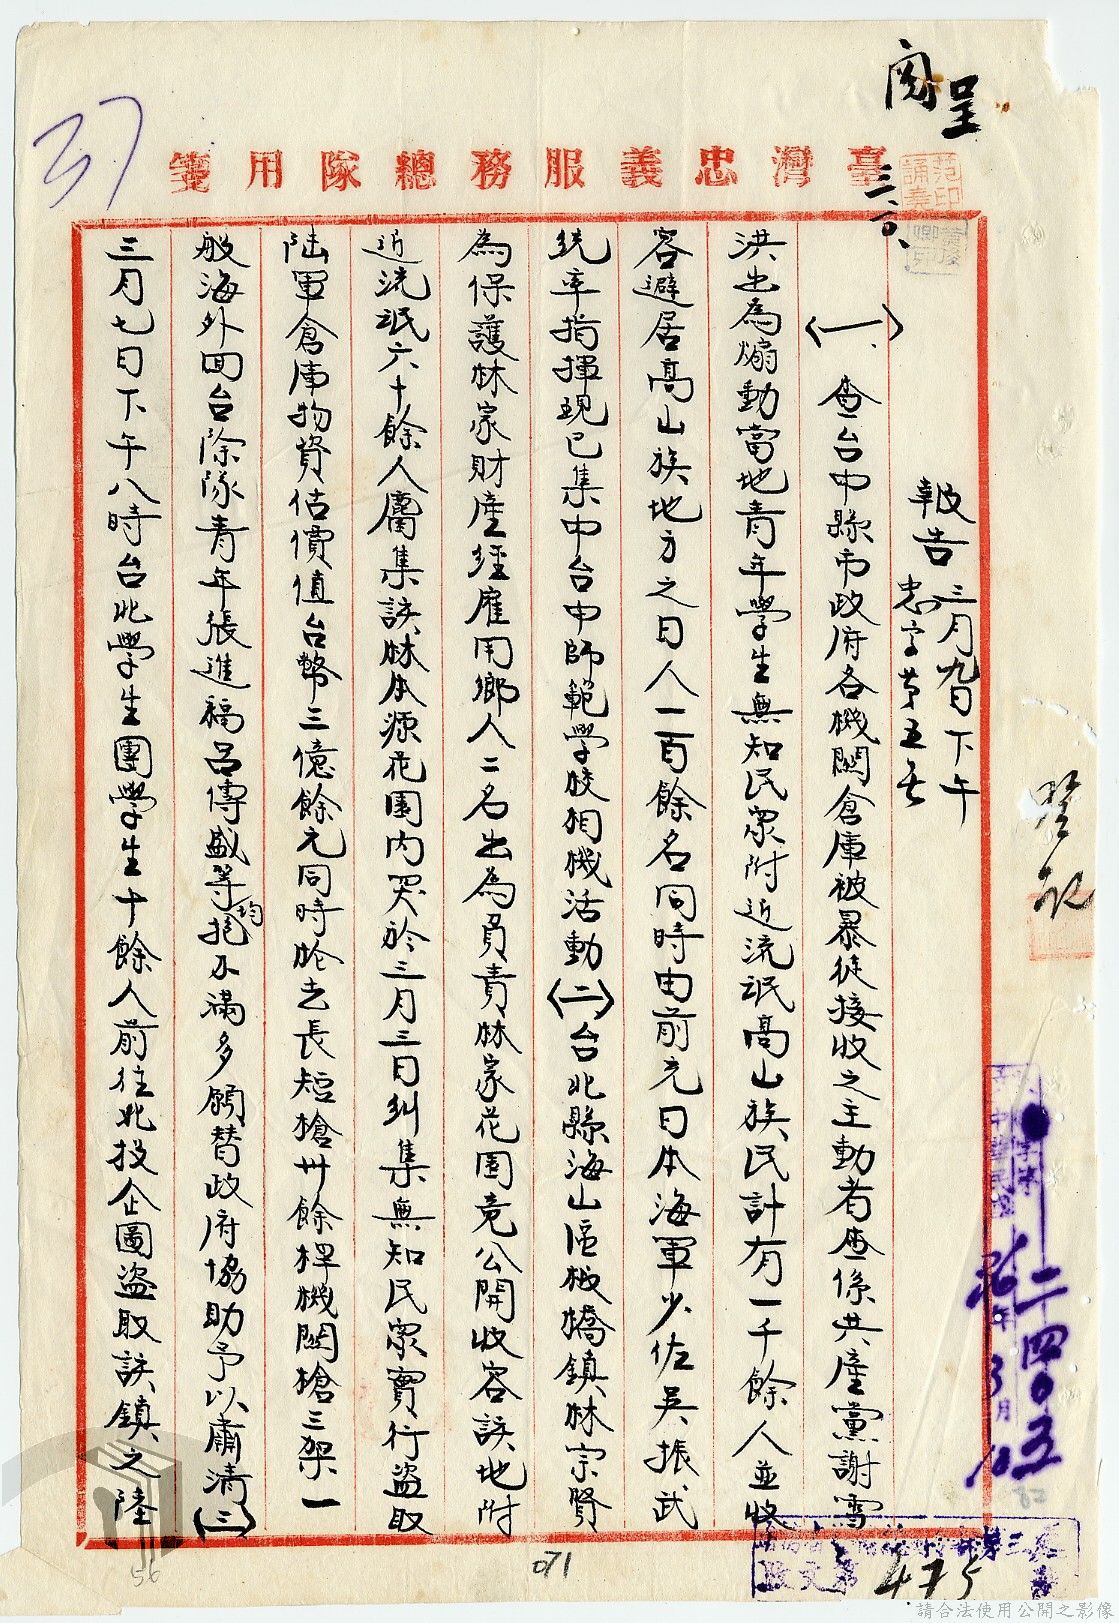 閱呈
三、十、
37
臺灣忠義服務總隊用箋
報告 三月九日下午
忠字第五號
〈一〉、查台中縣市政府各機關倉庫被暴徒接收之主動者查係共產黨謝雪
洪出為煽動當地青年學生無知民眾附近流氓高山族民計有一千餘人並將
容避居高山族地方之日人一百餘名同時由前充日本海軍少佐吳振武
統率指揮現已集中台中師範學校相機活動〈二〉台北縣海山區板橋鎮林宗賢
為保護林家財產經雇用鄉人二名出為負責林家花園竟公開收容該地附
近流氓六十餘人屬集該林本源花園內哭於三月三日糾集無知民眾實行盜取
陸軍倉庫物資估價值台幣三億餘元同時除去長短槍卅餘桿機關槍三架一
般海外回台除隊青年張進福呂傳盛等均抱不滿多願替政府協助予以肅清〈三〉
三月七日下午八時台北學生團學生十餘人前往北投企圖盜取該鎮之陸
登記
二四〇五
36年3月10
收文 第475
071
56
82
請合法使用公開之影像